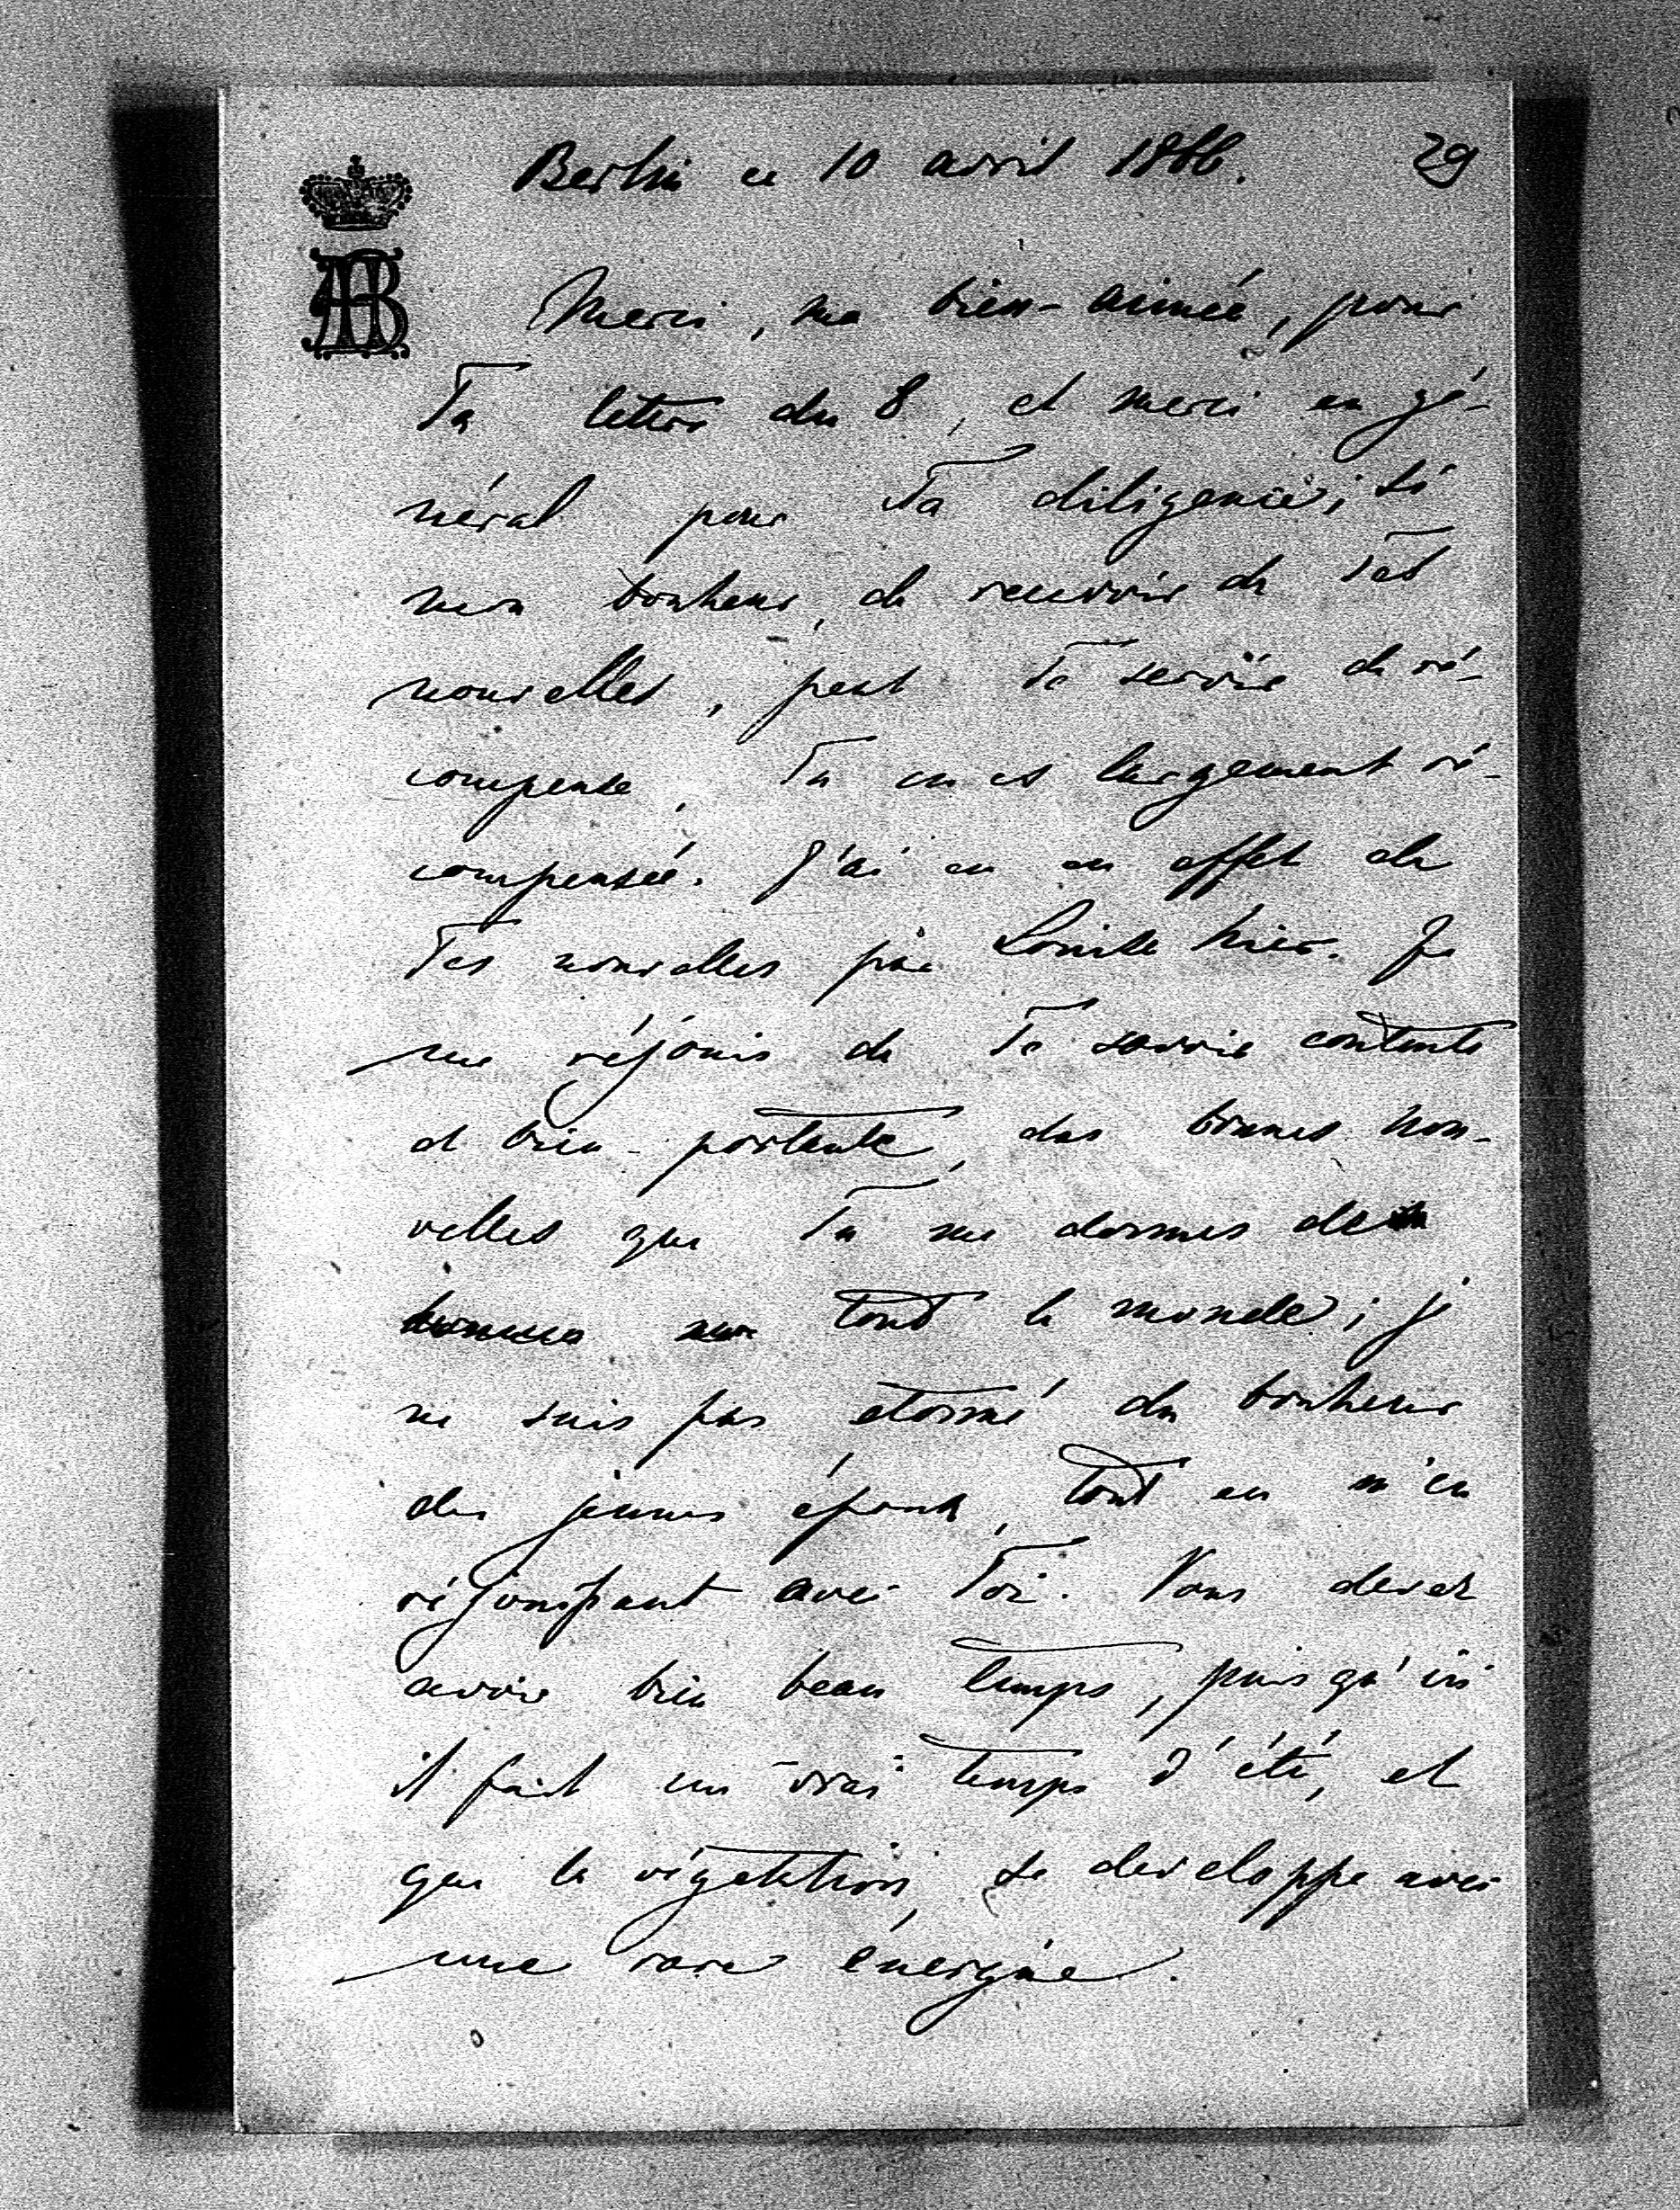 Berlin ce 10 avril 1866. 29
AB
Merci, ma bien-aimée, pour
Ta lettre du 8, et merci en gé-
néral pour Ta diligence; si
mon bonheur, de recevoir de Tes
nouvelles, peut Te servir de ré-
compense, Tu en es largement ré-
compensée. J'ai eu en effet de
Tes nouvelles par Louise hier. Je
me réjouis de Te savoir contente
et bien-portante, des bonnes nou-
velles que Tu me donnes de
tout le monde; je
ne suis pas étonné du bonheur
des jeunes époux, tout en m'en
réjouissant avec Toi. Vous devez
avoir bien beau temps, puisqu'ici
il fait un vrai temps d'été, et
que la végétation se developpe avec
une rare énergie.